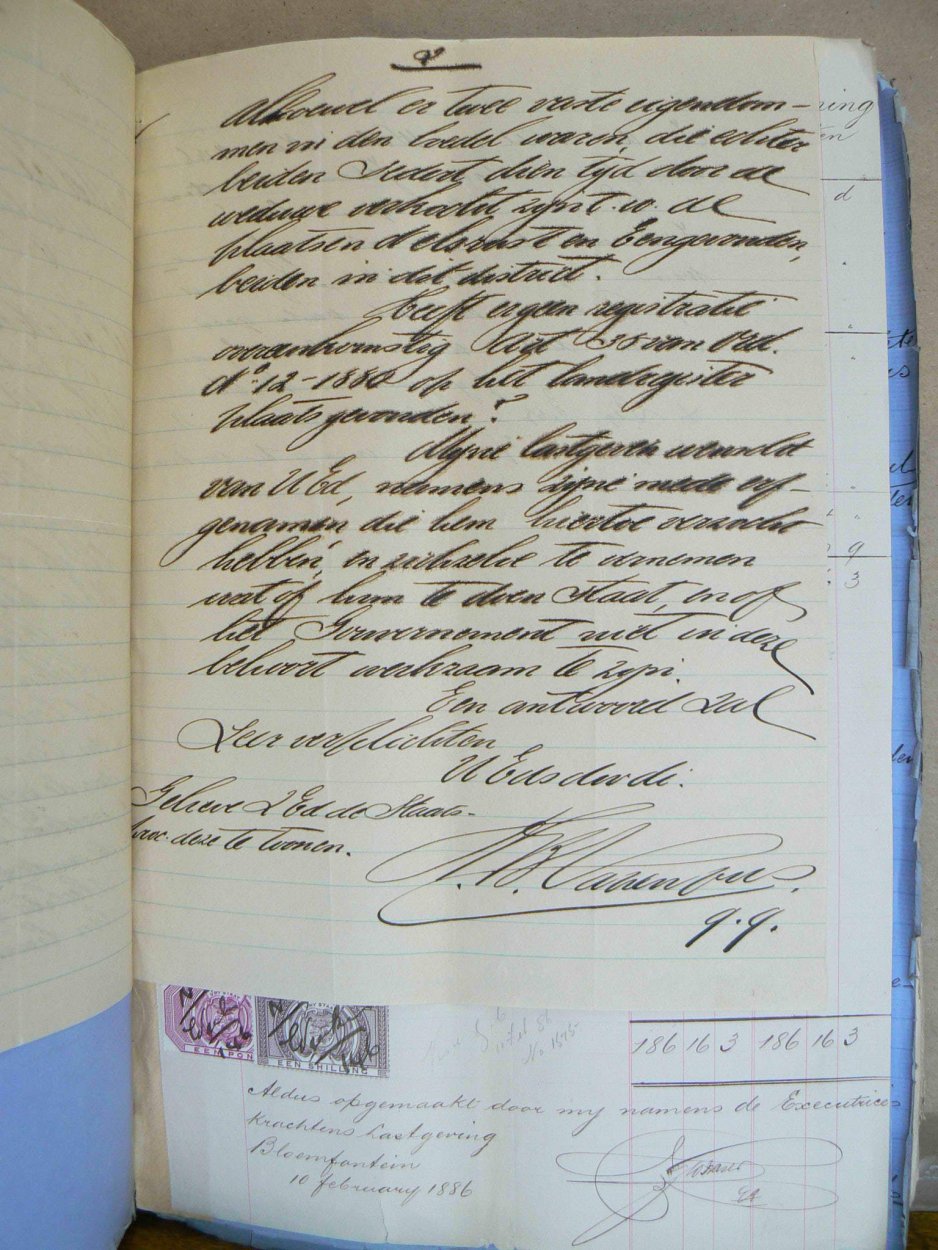 2
alhoewel er twee vaste eigendom-
men in den boedel waren, die echter
beiden sedert dien tijd door de
weduwe verkocht zijn t.w. de
plaatsen Melsrust en Eengevonden,
beiden in dit district.
Heeft er geen registratie
overeenkomstig Art 35 van Ord.
No 12-1880 op het landregister
plaats gevonden?
Mijne lastgever wenscht
van UEd, namens zijne mede erf-
genamen die hem hiertoe verzocht
hebben, en zichzelve te vernemen
wat of hun te doen staat, en of
het Gouvernement niet in deze
behoort werkzaam te zijn.
Een antwoord zal
Zeer verplichten
UEds dw di.
Gelieve ZEd de Staats-
proc. deze te toonen.
q.q.
EEN PON
EEN SHILLING
186 16 3 186 16 3
Aldus opgemaakt door my namens de Executrices
Krachtens Lastgeving
Bloemfontein
10 february 1886